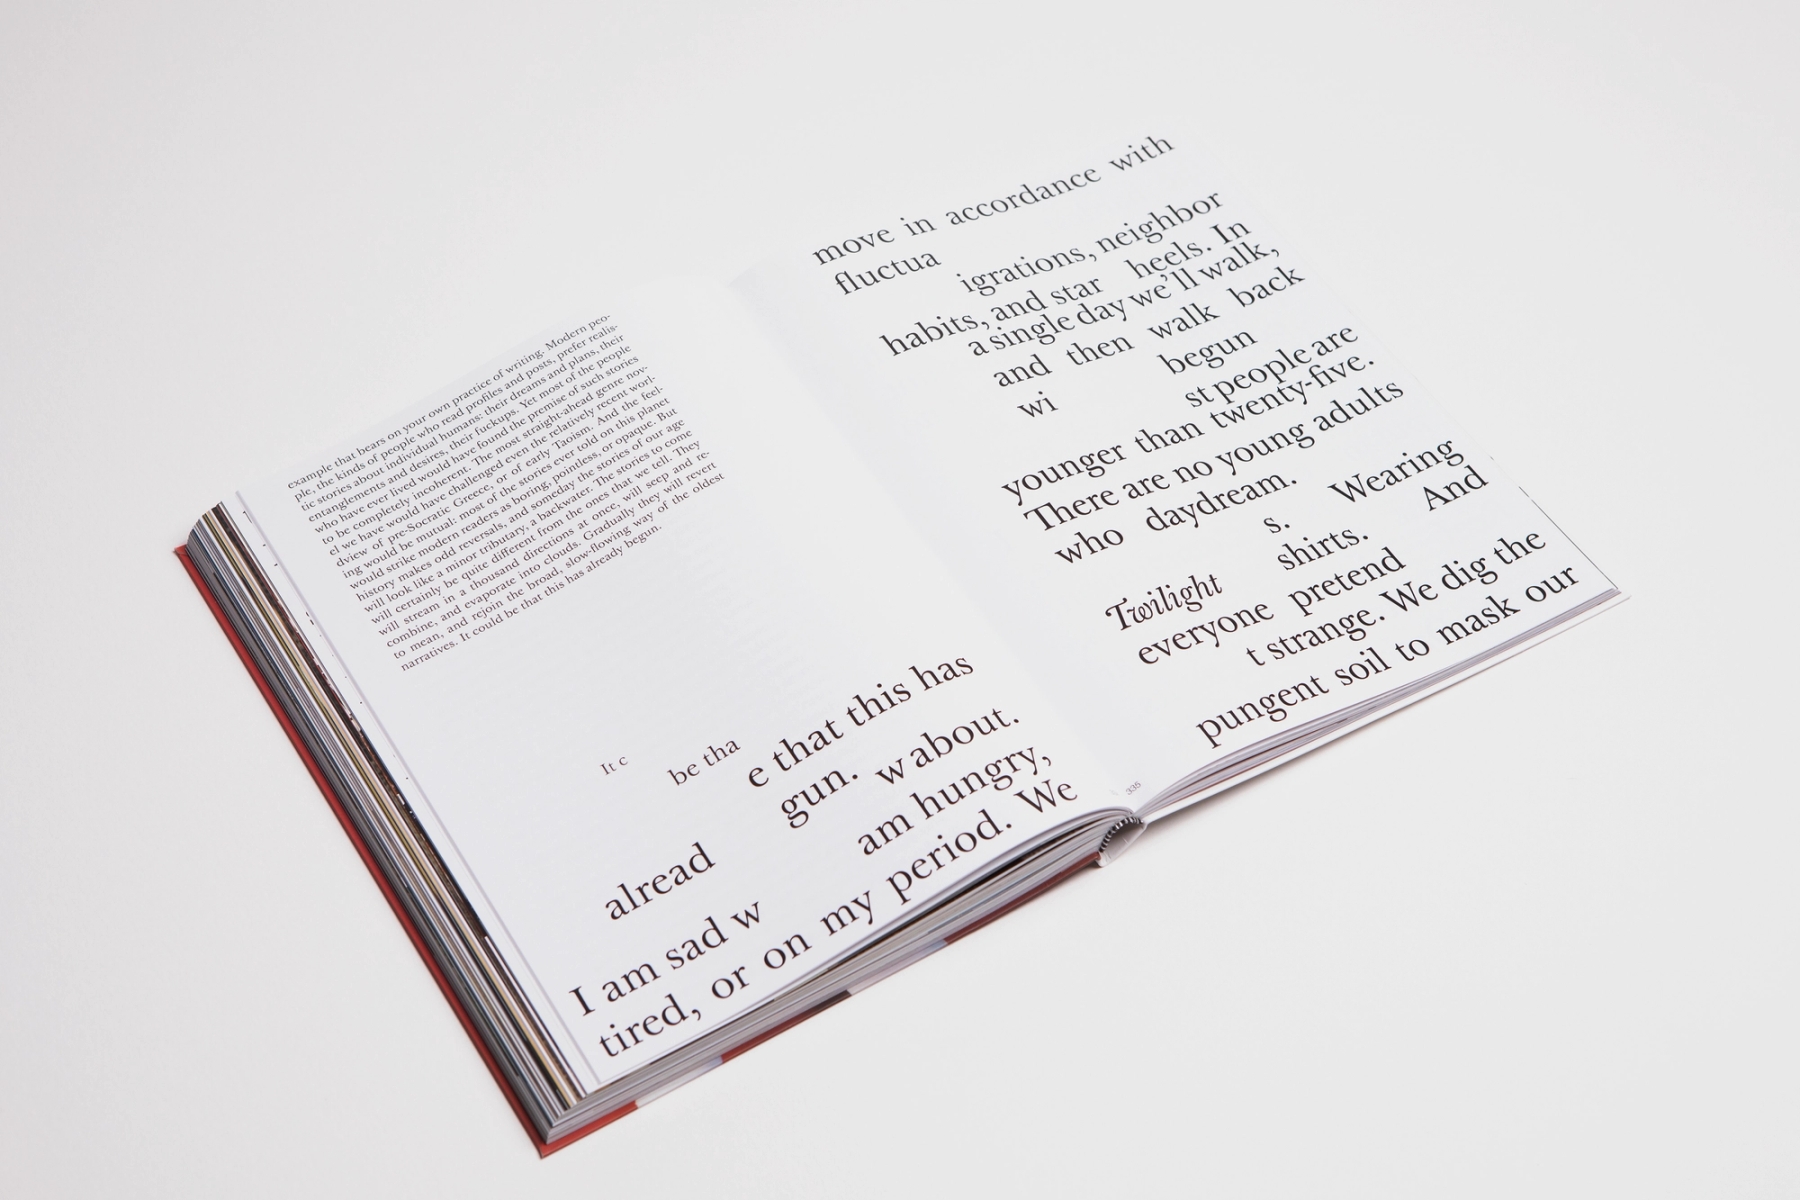 example that bears on your own practice of writing. Modern peo-
ple, the kinds of people who read profiles and posts, prefer realis-
tic stories about individual humans: their dreams and plans, their
entanglements and desires, their fuckups. Yet most of the people
who have ever lived would have found the premise of such stories
to be completely incoherent. The most straight-ahead genre nov-
el we have would have challenged even the relatively recent worl-
dview of pre-Socratic Greece, or of early Taoism. And the feel-
ing would be mutual: most of the stories ever told on this planet
would strike modern readers as boring, pointless, or opaque. But
history makes odd reversals, and someday the stories of our age
will look like a minor tributary, a backwater. The stories to come
will certainly be quite different from the ones that we tell. They
will stream in a thousand directions at once, will seep and re-
combine, and evaporate into clouds. Gradually they will revert
to mean, and rejoin the broad, slow-flowing way of the oldest
narratives. It could be that this has already begun.
It c be tha e that this has
alread gun. w about.
I am sad w am hungry,
tired, or on my period. We
335
move in accordance with
fluctua igrations, neighbor
habits, and star heels. In
a single day we'll walk,
and then walk back
wi begun
st people are
younger than twenty-five.
There are no young adults
who daydream. Wearing
s. And
Twilight shirts.
everyone pretend
t strange. We dig the
pungent soil to mask our